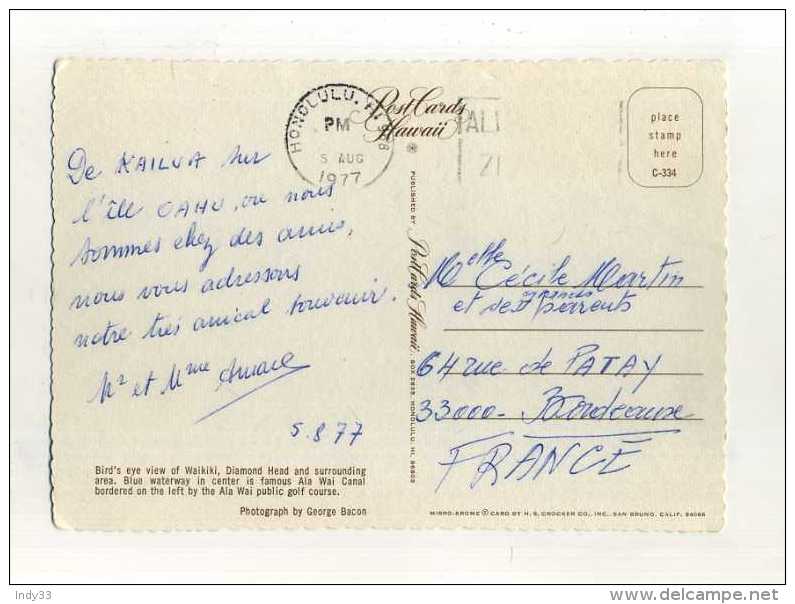 HONOLULU, HI 968
PM
5 AUG
1977
Post Cards
Hawaii
place
stamp
here
C-334
De KAILUA sur
l'île OAHU, ou nous
sommes chez des amis,
nous vous adressons
notre très amical souvenir.
Mr et Mme
5.8.77
Bird's eye view of Waikiki, Diamond Head and surrounding
area. Blue waterway in center is famous Ala Wai Canal
bordered on the left by the Ala Wai public golf course.
Photograph by George Bacon
PUBLISHED BY Post Cards Hawaii, BOX 2835, HONOLULU, HI. 96803
Melle Cécile Martin
et ses grands parents
64 rue de PATAY
33000 - Bordeaux
FRANCE
MIRRO-KROME ® CARD BY H. S. CROCKER CO., INC., SAN BRUNO, CALIF. 94066
Indy33
delcampe.net